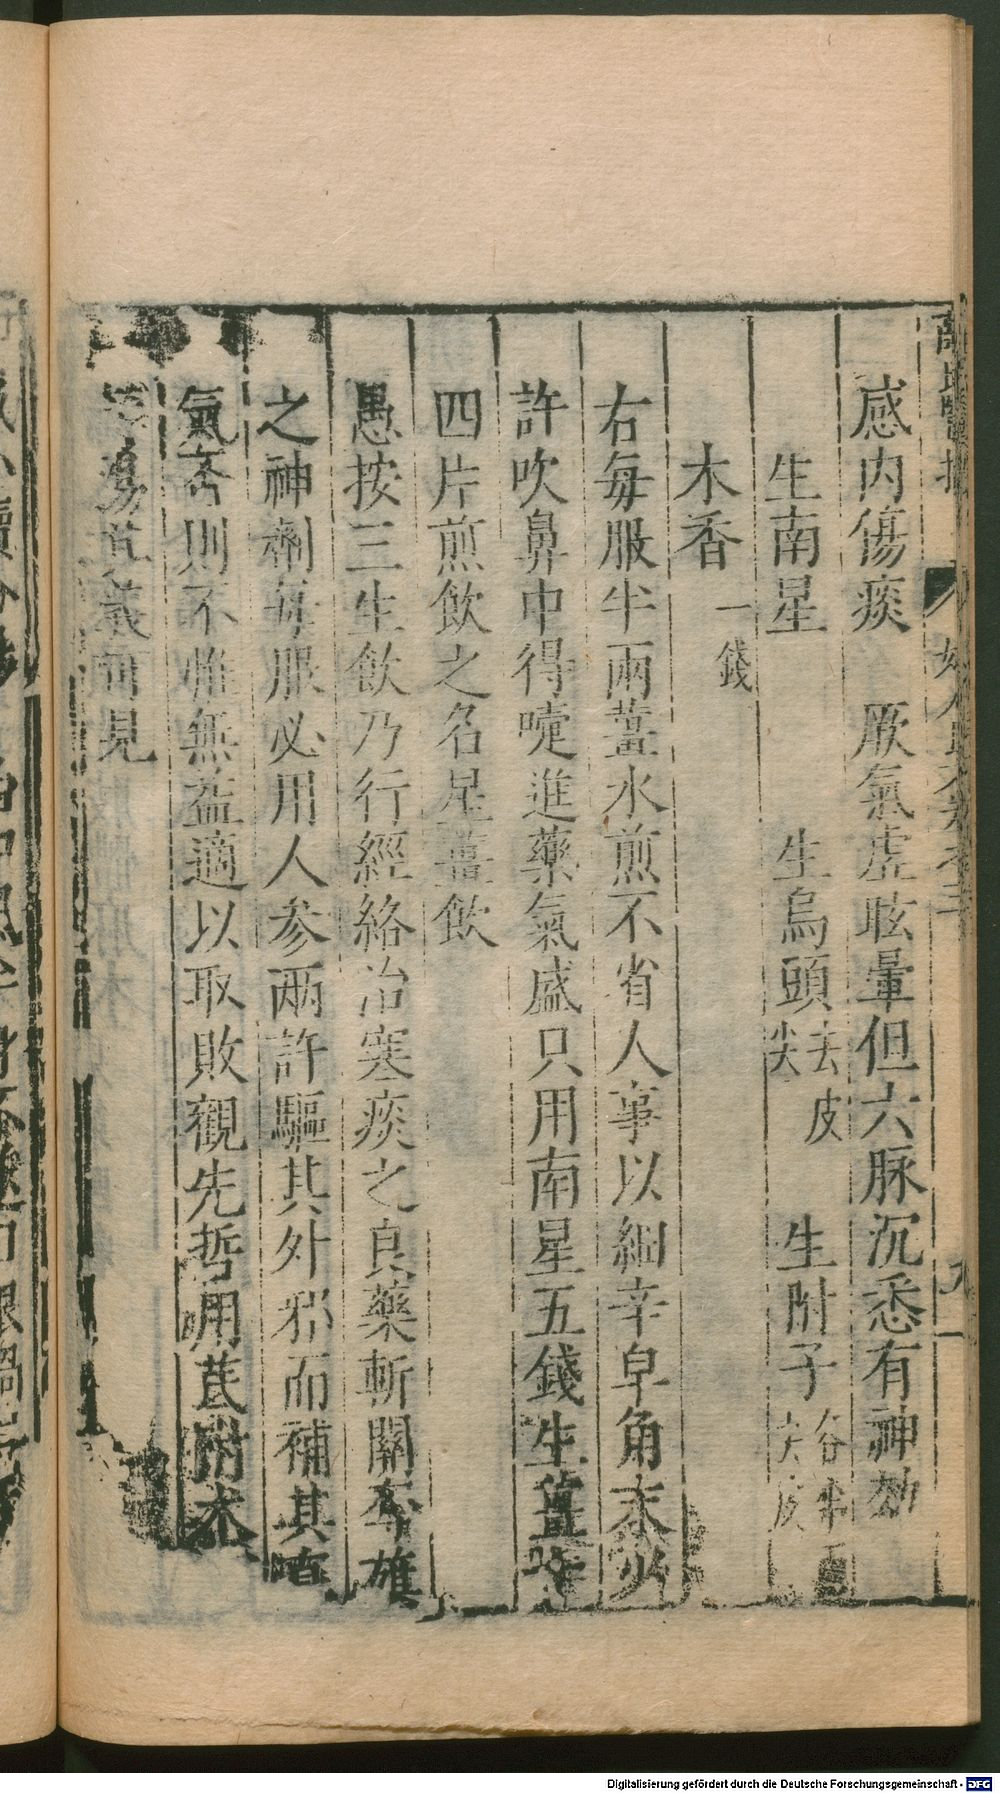 感内傷痰　厥氣虛眩暈但六脉沉悉有神効
生南星　生烏頭去皮尖　生附子去皮
木香一錢
右每服半兩薑水煎不省人事以細辛皁角末少
許吹鼻中得嚏進藥氣盛只用南星五錢生薑
四片煎飲之名星薑飲
愚按三生飲乃行經絡治寒痰之良藥斬關奪雄
之神劑每服必用人參兩許驅其外邪而補其眞
氣否則不惟無益適以取敗觀先哲用芪附朮
附
湯其義可見
Digitalisierung gefördert durch die Deutsche Forschungsgemeinschaft - DFG